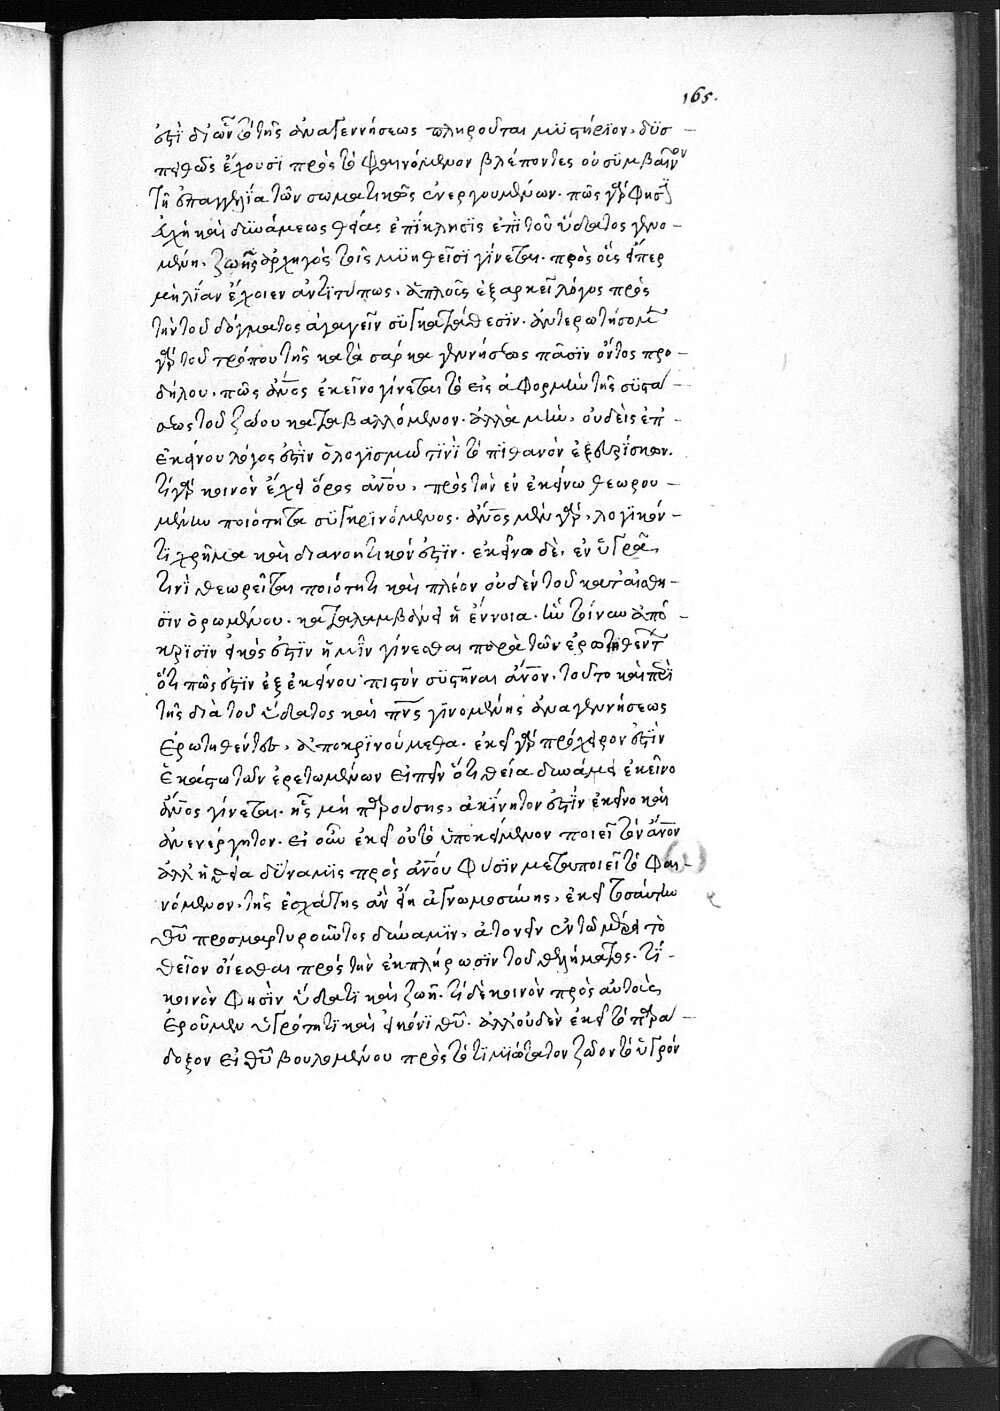 165.
ἐστὶ δι' ὧν τὸ τῆς ἀναγεννήσεως πληροῦται μυστήριον, δυσ-
πειθῶς ἔχουσι πρὸς τὸ φαινόμενον βλέποντες οὐ συμβαῖνον
τῇ ἐπαγγελίᾳ τῶν σωματικῶς ἐνεργουμένων. πῶς γάρ φησιν
εὐχὴ καὶ δυνάμεως θείας ἐπίκλησις ἐπὶ τοῦ ὕδατος γενο-
μένη, ζωῆς ἀρχηγὸς τοῖς μυηθεῖσι γίνεται. πρὸς οἷς εἴπερ
μὴ λίαν ἔχοιεν ἀντιτύπως, ἁπλοῖς ἐξαρκεῖ λόγος πρὸς
τὴν τοῦ δόγματος ἀγαγεῖν συγκατάθεσιν. ἀντερωτήσομεν
γὰρ τοῦ τρόπου τῆς κατὰ σάρκα γεννήσεως πᾶσιν ὄντος προ-
δήλου, πῶς ἄνος ἐκεῖνο γίνεται τὸ εἰς ἀφορμὴν τῆς συστά-
σεως τοῦ ζώου καταβαλλόμενον. ἀλλὰ μὴν, οὐδεὶς ἐπ'
ἐκείνου λόγος ἐστὶν ὁ λογισμῷ τινὶ τὸ πιθανὸν ἐξευρίσκων.
τί γὰρ κοινὸν ἔχει ὅρος ἀνου, πρὸς τὴν ἐν ἐκείνῳ θεωρου-
μένην ποιότητα συγκρινόμενος. ἄνος μὲν γὰρ, λογικόν-
τι χρῆμα καὶ διανοητικόν ἐστιν. ἐκεῖνο δὲ, ἐν ὑγρᾷ
τινὶ θεωρεῖται ποιότητι καὶ πλέον οὐδὲν τοῦ κατ' αἴσθη-
σιν ὁρωμένου, καταλαμβάνει ἡ ἔννοια. ἣν τοίνυν ἀπό-
κρισιν εἰκός ἐστιν ἡμῖν γίνεσθαι παρὰ τῶν ἐρωτηθέντ
ὅτι πῶς ἐστιν ἐξ ἐκείνου πιστὸν συστῆναι ἄνον, τοῦτο καὶ περὶ
τῆς διὰ τοῦ ὕδατος καὶ πνς γινομένης ἀναγεννήσεως
ἐρωτηθέντες, ἀποκρινούμεθα. ἐκεῖ γὰρ πρόχειρον ἐστὶν
ἑκάστῳ τῶν ἐρετωμένων εἰπεῖν ὅτι θεία δυνάμει ἐκεῖνο
ἄνος γίνεται. ἧς μὴ παρούσης, ἀκίνητον ἐστὶν ἐκεῖνο καὶ
ἀνενέργητον. εἰ οὖν ἐκεῖ οὐ τὸ ὑποκείμενον ποιεῖ τὸν ἄνον
ἀλλ' ἡ θεία δύναμις πρὸς ἀνου φύσιν μεταποιεῖ τὸ φαι-
νόμενον, τῆς ἐσχάτης ἂν εἴη ἀγνωμοσύνης, ἐκεῖ τοσαύτην
θῦ προσμαρτυροῦντος δύναμιν, ἀτονεῖν ἐν τῷ μέρει τὸ
θεῖον οἴεσθαι πρὸς τὴν ἐκπλήρωσιν τοῦ θελήματος. τί-
κοινὸν φησὶν ὕδατι καὶ ζωῇ. τί δὲ κοινὸν πρὸς αὐτοὺς
ἐροῦμεν ὑγρότητι καὶ εἰκόνι θῦ. ἀλλ' οὐδὲν ἐκεῖ τὸ παρά-
δοξον εἰ θῦ βουλομένου πρὸς τὸ τιμιώτατον ζῶον τὸ ὑγρόν